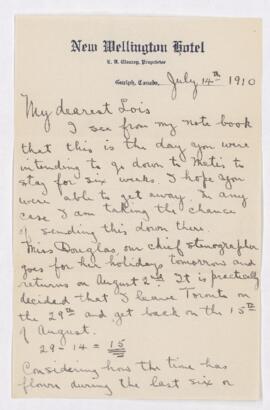 New Wellington Hotel
Proprietor
Guelph, Canada, July 14th 1910
My dearest Lois
I see from my note book
that this is the day you were
intending to go down to Metis to
stay for six weeks. I hope you
were able to get away. In any
case I am taking the chance
of sending this down there.
Miss Douglas, our chief stenographer
goes for her holidays tomorrow and
returns on August 2nd. It is practically
decided that I leave Toronto on
the 29th and get back on the 15th
of August.
29 - 14 = 15
Considering how the time has
flown during the last six or